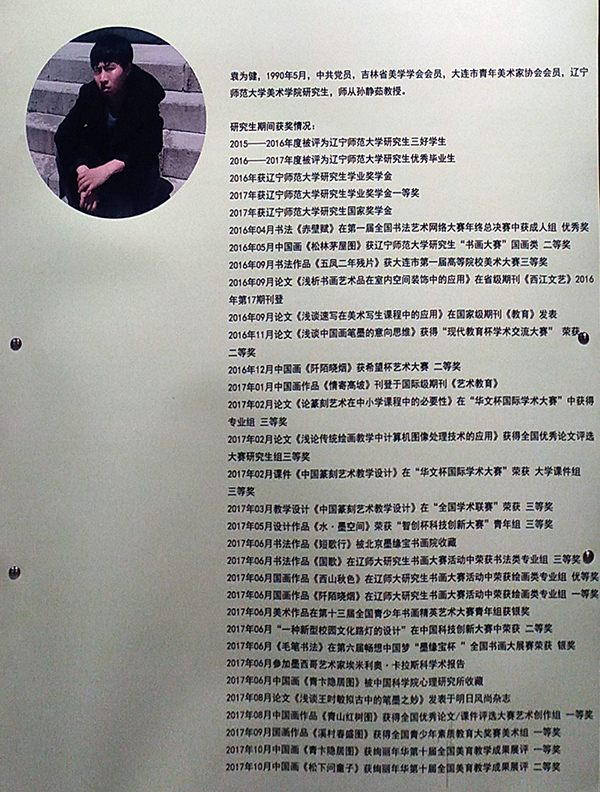 袁为健，1990年5月，中共党员，吉林省美学学会会员，大连市青年美术家协会会员，辽宁
师范大学美术学院研究生，师从孙静茹教授。
研究生期间获奖情况：
2015——2016年度被评为辽宁师范大学研究生三好学生
2016——2017年度被评为辽宁师范大学研究生优秀毕业生
2016年获辽宁师范大学研究生学业奖学金
2017年获辽宁师范大学研究生学业奖学金一等奖
2017年获辽宁师范大学研究生国家奖学金
2016年04月书法《赤壁赋》在第一届全国书法艺术网络大赛年终总决赛中获成人组 优秀奖
2016年05月中国画《松林茅屋图》获辽宁师范大学研究生“书画大赛”国画类 二等奖
2016年09月书法作品《五凤二年残片》获大连市第一届高等院校美术大赛三等奖
2016年09月论文《浅析书画艺术品在室内空间装饰中的应用》在省级期刊《西江文艺》2016
年第17期刊登
2016年09月论文《浅谈速写在美术写生课程中的应用》在国家级期刊《教育》发表
2016年11月论文《浅谈中国画笔墨的意向思维》获得“现代教育杯学术交流大赛” 荣获
二等奖
2016年12月中国画《阡陌晓烟》获希望杯艺术大赛 二等奖
2017年01月中国画作品《情寄高坡》刊登于国际级期刊《艺术教育》
2017年02月论文《论篆刻艺术在中小学课程中的必要性》在“华文杯国际学术大赛”中获得
专业组 三等奖
2017年02月论文《浅论传统绘画教学中计算机图像处理技术的应用》获得全国优秀论文评选
大赛研究生组三等奖
2017年02月课件《中国篆刻艺术教学设计》在“华文杯国际学术大赛”荣获 大学课件组
三等奖
2017年03月教学设计《中国篆刻艺术教学设计》在“全国学术联赛”荣获 三等奖
2017年05月设计作品《水·墨空间》荣获“智创杯科技创新大赛”青年组 三等奖
2017年06月书法作品《短歌行》被北京墨缘宝书画院收藏
2017年06月书法作品《国歌》在辽师大研究生书画大赛活动中荣获书法类专业组 三等奖
2017年06月国画作品《西山秋色》在辽师大研究生书画大赛活动中荣获绘画类专业组 优等奖
2017年06月国画作品《阡陌晓烟》在辽师大研究生书画大赛活动中荣获绘画类专业组 一等奖
2017年06月美术作品在第十三届全国青少年书画精英艺术大赛青年组获银奖
2017年06月“一种新型校园文化路灯的设计”在中国科技创新大赛中荣获 二等奖
2017年06月《毛笔书法》在第六届畅想中国梦“墨缘宝杯 ”全国书画大展赛荣获 银奖
2017年06月参加墨西哥艺术家埃米利奥·卡拉斯科学术报告
2017年06月中国画《青卞隐居图》被中国科学院心理研究所收藏
2017年08月论文《浅谈王时敏拟古中的笔墨之妙》发表于明日风尚杂志
2017年08月中国画作品《青山红树图》获得全国优秀论文/课件评选大赛艺术创作组 一等奖
2017年09月国画作品《溪村春盛图》获得全国青少年素质教育大奖赛美术组 一等奖
2017年10月中国画《青卞隐居图》获绚丽年华第十届全国美育教学成果展评 一等奖
2017年10月中国画《松下问童子》获绚丽年华第十届全国美育教学成果展评 二等奖